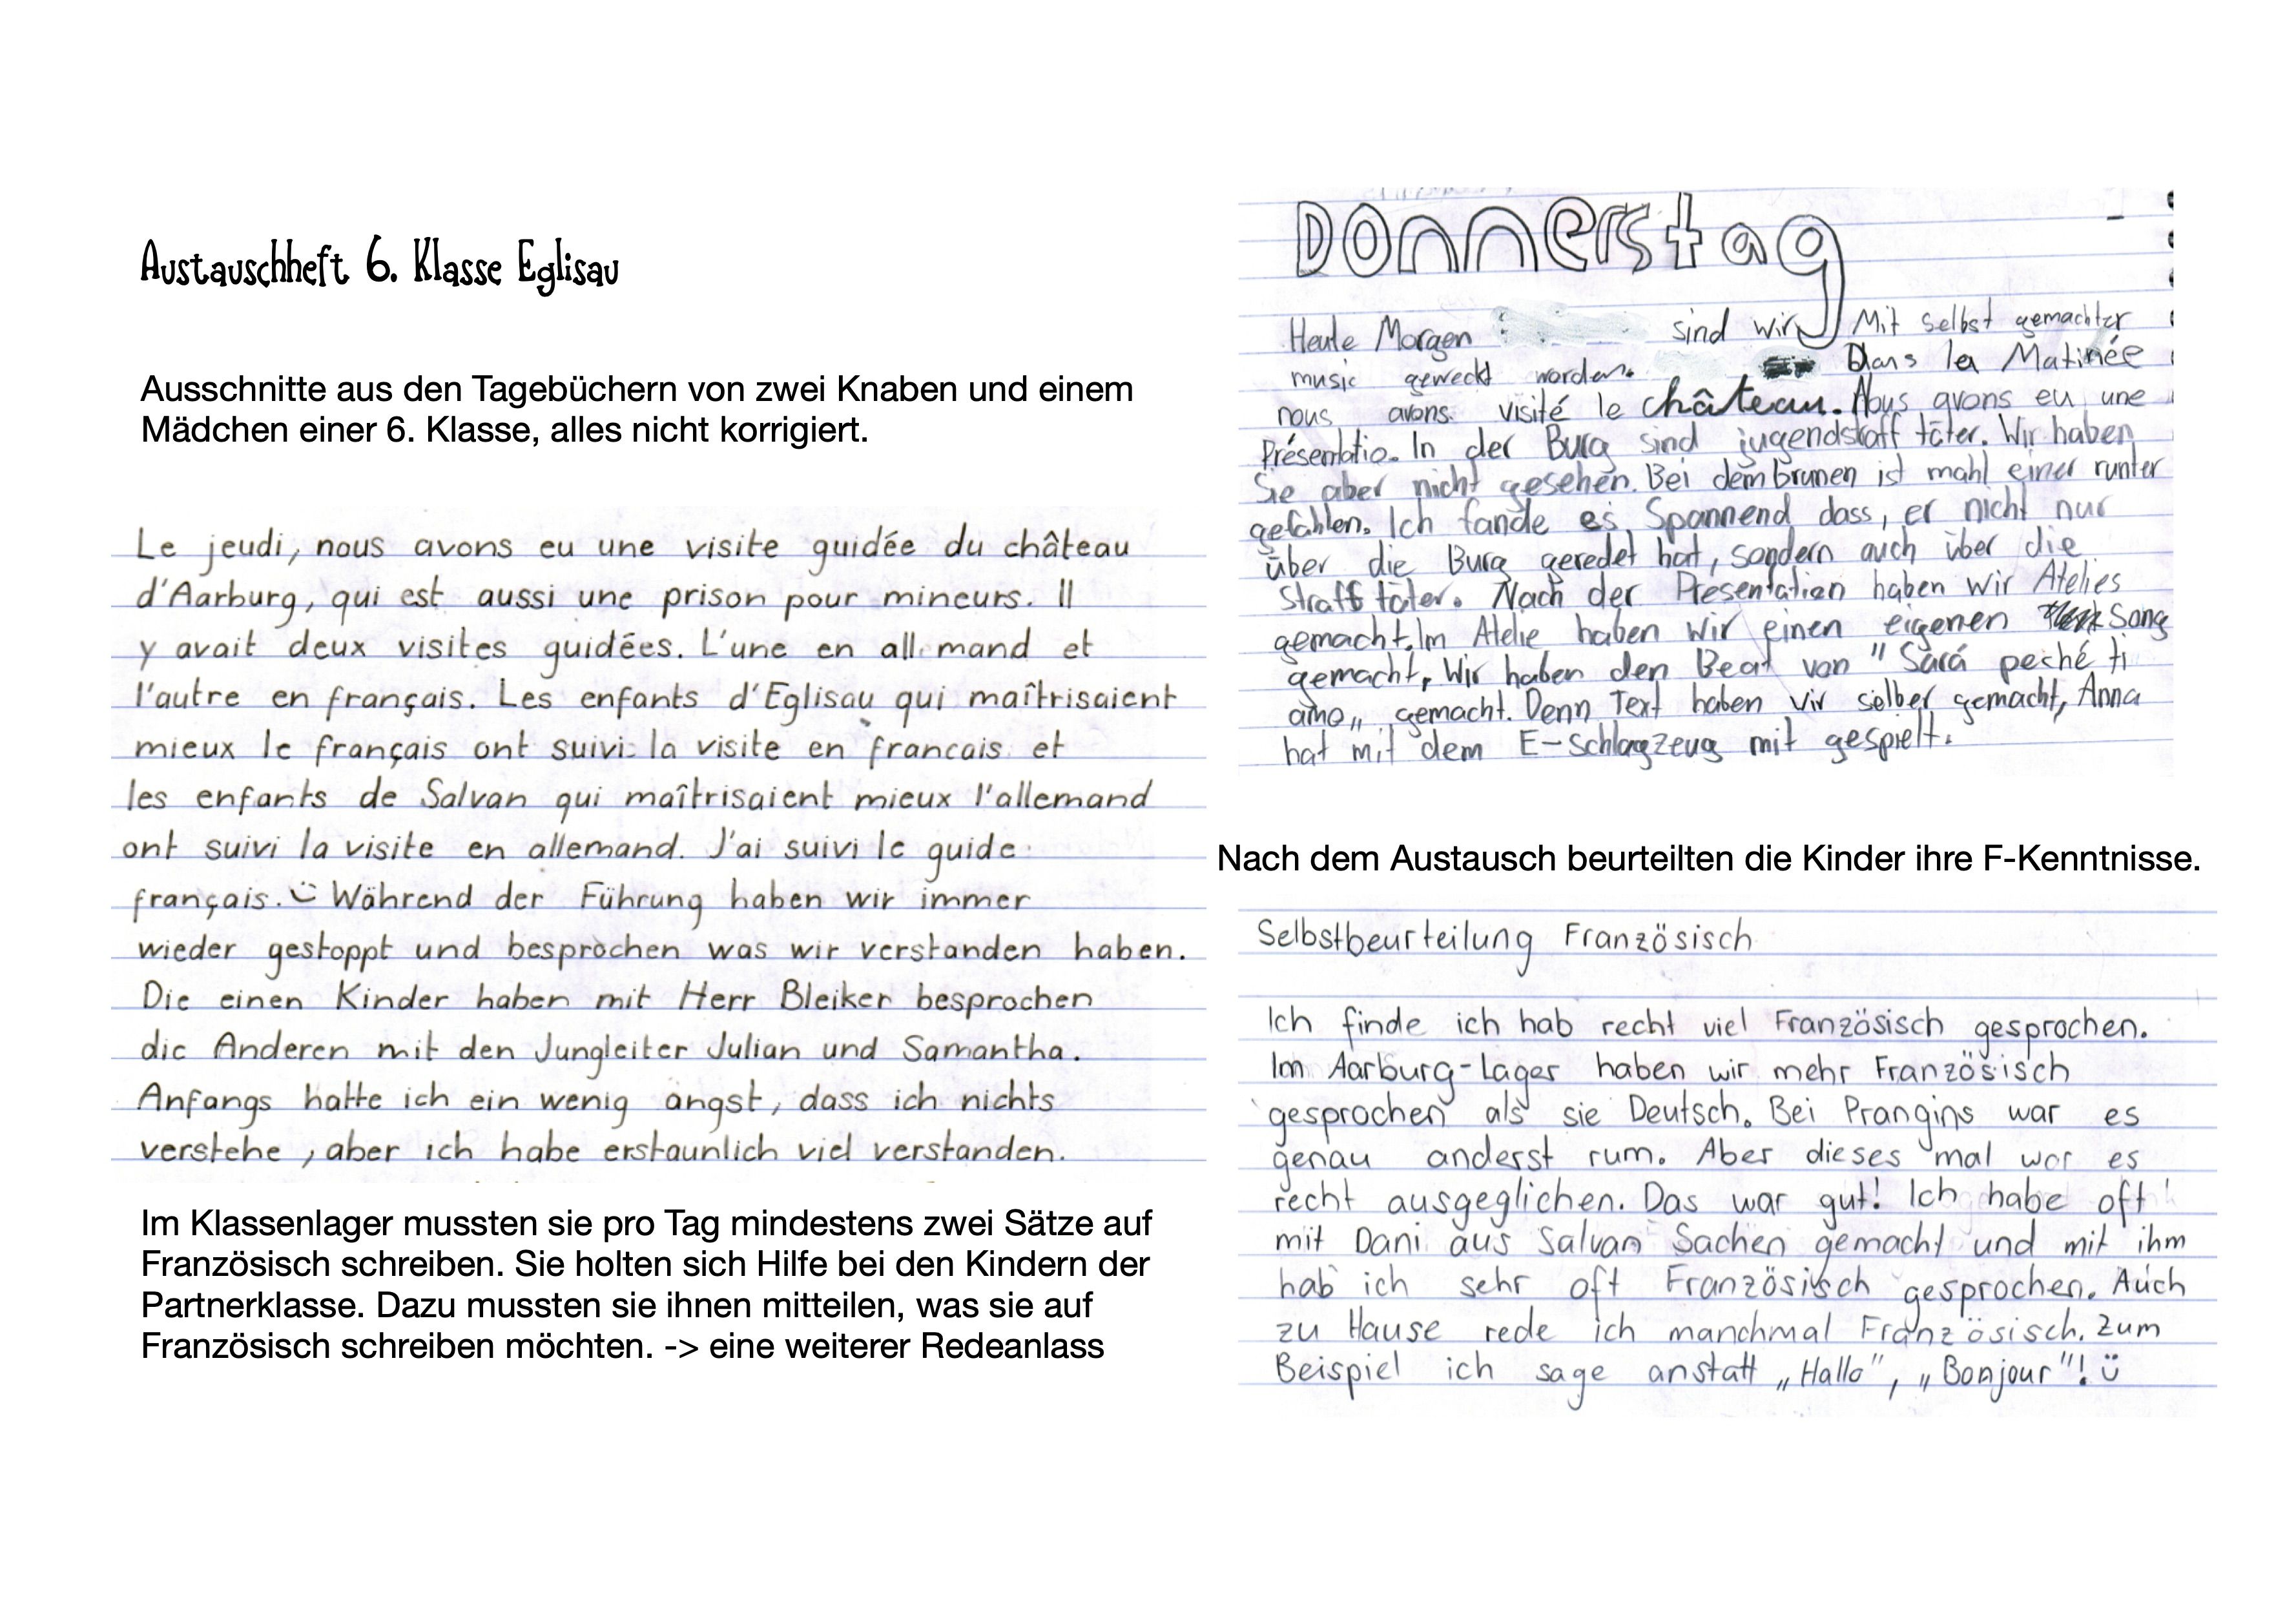 Austauschheft 6. Klasse Eglisau
Ausschnitte aus den Tagebüchern von zwei Knaben und einem
Mädchen einer 6. Klasse, alles nicht korrigiert.
Le jeudi, nous avons eu une visite guidée du château
d'Aarburg, qui est aussi une prison pour mineurs. Il
y avait deux visites guidées. L'une en allemand et
l'autre en français. Les enfants d'Eglisau qui maîtrisaient
mieux le français ont suivi la visite en francais et
les enfants de Salvan qui maîtrisaient mieux l'allemand
ont suivi la visite en allemand. J'ai suivi le guide
français. Während der Führung haben wir immer
wieder gestoppt und besprochen was wir verstanden haben.
Die einen Kinder haben mit Herr Bleiker besprochen
die Anderen mit den Jungleiter Julian und Samantha.
Anfangs hatte ich ein wenig angst, dass ich nichts
verstehe, aber ich habe erstaunlich viel verstanden.
Im Klassenlager mussten sie pro Tag mindestens zwei Sätze auf
Französisch schreiben. Sie holten sich Hilfe bei den Kindern der
Partnerklasse. Dazu mussten sie ihnen mitteilen, was sie auf
Französisch schreiben möchten. -> eine weiterer Redeanlass
Donnerstag
Heute Morgen sind wir Mit selbst gemachter
music geweckt worden. Dans la Matinée
nous avons visité le château. Nous avons eu une
Présentatio. In der Burg sind jugendstraff täter. Wir haben
Sie aber nicht gesehen. Bei dem brunen ist mahl einer runter
gefahlen. Ich fande es Spannend dass, er nicht nur
über die Burg geredet hat, sondern auch über die
Straff täter. Nach der Presentation haben wir Atelies
gemacht. Im Atelie haben wir einen eigenen Song
gemacht, Wir haben den Beat von "Sará peché ti
amo" gemacht. Denn Text haben wir selber gemacht, Anna
hat mit dem E-Schlagzeug mit gespielt.
Nach dem Austausch beurteilten die Kinder ihre F-Kenntnisse.
Selbstbeurteilung Französisch
Ich finde ich hab recht viel Französisch gesprochen.
Im Aarburg-Lager haben wir mehr Französisch
gesprochen als sie Deutsch. Bei Prangins war es
genau anderst rum. Aber dieses mal war es
recht ausgeglichen. Das war gut! Ich habe oft
mit Dani aus Salvan Sachen gemacht und mit ihm
hab ich sehr oft Französisch gesprochen. Auch
zu Hause rede ich manchmal Französisch. Zum
Beispiel ich sage anstatt „Hallo", „Bonjour"!